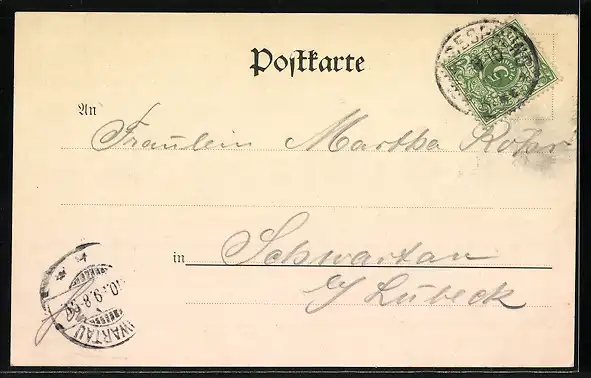 Postkarte
An
Fräulein Martha Rohr
in Schwartau
b/ Lübeck
WARTAU